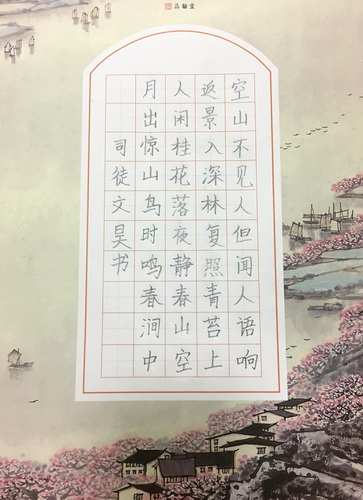 空山不见人但闻人语响
返景入深林复照青苔上
人闲桂花落夜静春山空
月出惊山鸟时鸣春涧中
司徒文昊书